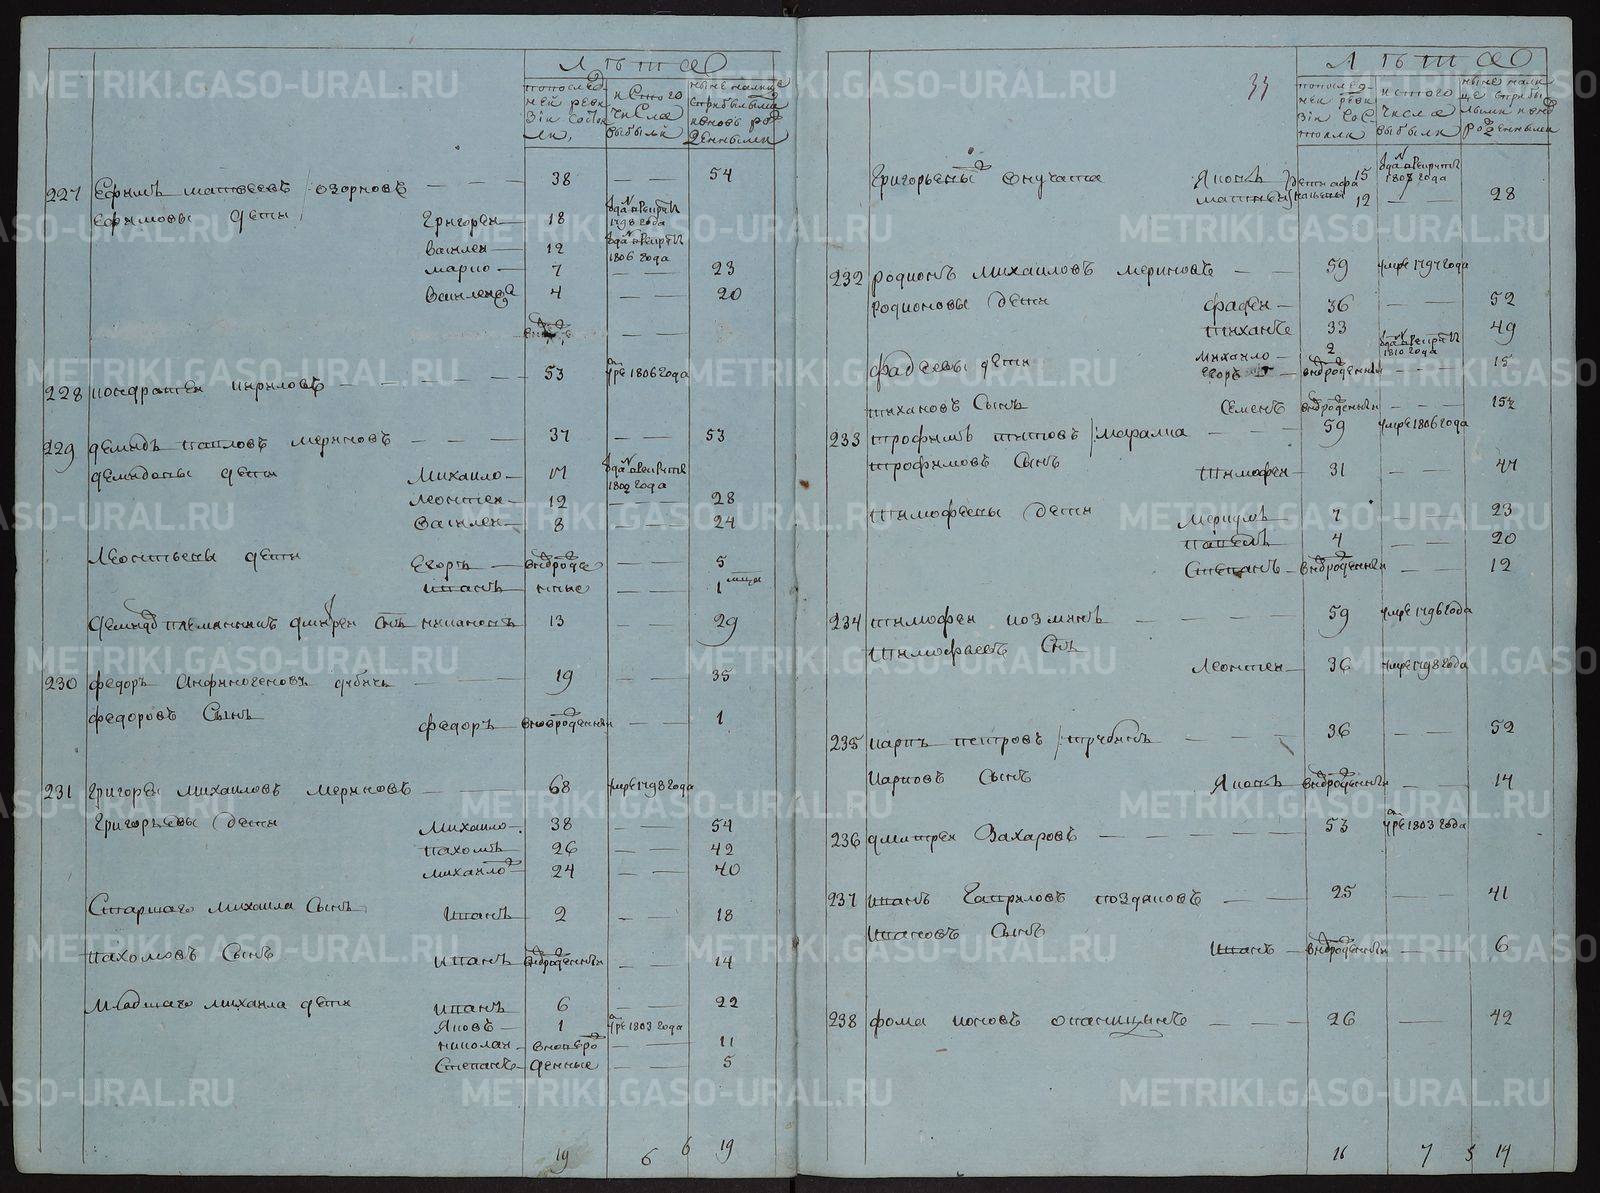 Лѣта
по послед
ней реви
зіи состоя
ли,
и с того
числа
выбыли
ныне налице
с прибылыми
и вновь ро
жденными
227 Ефимъ матвеевъ / озорновъ — 38 — 54
Ефимовы дети Григореи — 18 отдан в рекруты 1798 года
Василеи — 12 отдан в рекруты 1806 года
марко — 7 — 23
Василеи 2й 4 — 20
228 кондратеи кириловъ — 53 умре 1806 года
229 демидъ павловъ мериновъ — 37 — 53
демидовы дети Михаило — 17 отдан в рекруты 1802 года
Леонтеи — 12 — 28
Василеи — 8 — 24
Леонтьевы дети Егоръ — вновь рожде 5
иванъ нные 1
демида племянникъ 13 — 29
230 федоръ Анфиногеновъ — 19 — 35
федоровъ Сынъ федоръ — вновь рожденныи — 1
231 Григореи михаиловъ мериновъ — 68 умре 1798 года
Григорьевы дети Михаило — 38 — 54
пахомъ — 26 — 42
михаило 2й 24 — 40
Старшаго михаила Сынъ Иванъ 2 — 18
пахомовъ Сынъ иванъ вновь рожденныи — 14
младшаго михаила дети иванъ 6 — 22
Яковъ — 1 умре 1803 года
николаи — вновь ро — 11
Степанъ — жденные — 5
19 6 6 19
33
Лѣта
по послед
ней реви
зіи сос
тояли
и с того
числа
выбыли
ныне нали
це с прибы
лыми и вновь
рожденными
Григорьевы внучата Яковъ 15 отдан в рекруты 1807 года
матвеи 12 — 28
232 родионъ михаиловъ мериновъ — 59 умре 1797 года
родионовы дети фадеи — 36 — 52
тиханъ 33 — 49
фадеевы дети михаило — 2 отдан в рекруты 1810 года
Егоръ вновь рожденныи — 15
тихановъ Сынъ Семенъ вновь рожденныи —
233 трофимъ титовъ / — 59 умре 1806 года
трофимовъ Сынъ тимофеи — 31 — 47
тимофеевы дети меркулъ — 7 — 23
павелъ 4 — 20
Степанъ — вновь рожденныи — 12
234 тимофеи козминъ — 59 умре 1796 года
тимофеевъ Снъ Леонтеи — 36 умре 1798 года
235 карпъ петровъ / трубинъ — 36 — 52
карповъ Сынъ Яковъ вновь рожденныи — 14
236 дмитреи Захаровъ — 53 умре 1803 года
237 иванъ Гавриловъ поздновъ — 25 — 41
ивановъ Сынъ иванъ — вновь рожденныи — 6
238 фома ионовъ опаницынъ — 26 — 42
16 7 5 14
METRIKI.GASO-URAL.RU